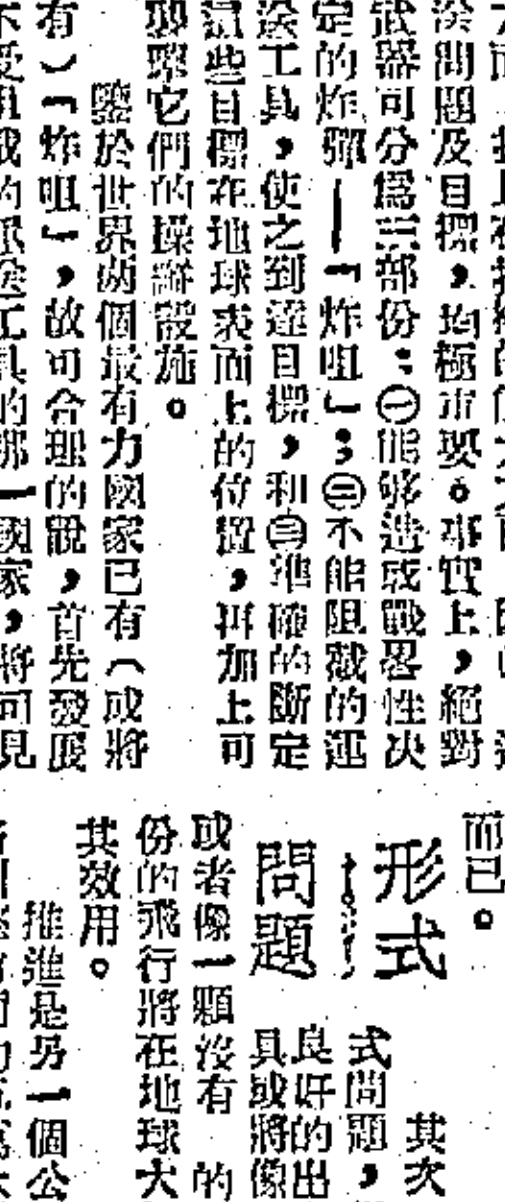 送問題及目標，均極重要。事實上，絕對
武器可分爲三部份：㊀能够造成戰畧性决
定的炸彈——「炸咀」；㊁不能阻截的運
送工具，使之到達目標，和㊂準確的斷定
這些目標在地球表面上的位置，再加上可
以摧毀它們的操縱設施。
鑒於世界兩個最有力國家已有（或將
有）「炸咀」，故可合理的說，首先發展
不受阻截的運送工具的那一國家，將可見
而已。
形式
問題
其次
式問題，
良好的出
具或將像
或者像一顆沒有 的
份的飛行將在地球大
其效用。
推進是另一個公